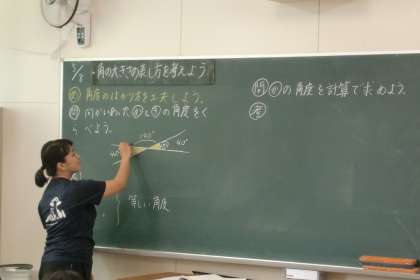 角の大きさの表し方を考えよう
め 角度のはかり方を工夫しよう。
問 向かいあった㋐と㋒の角度をく
らべよう。
140°
40°
40°
等しい角度
問 ㋕の角度を計算で求めよう。
考